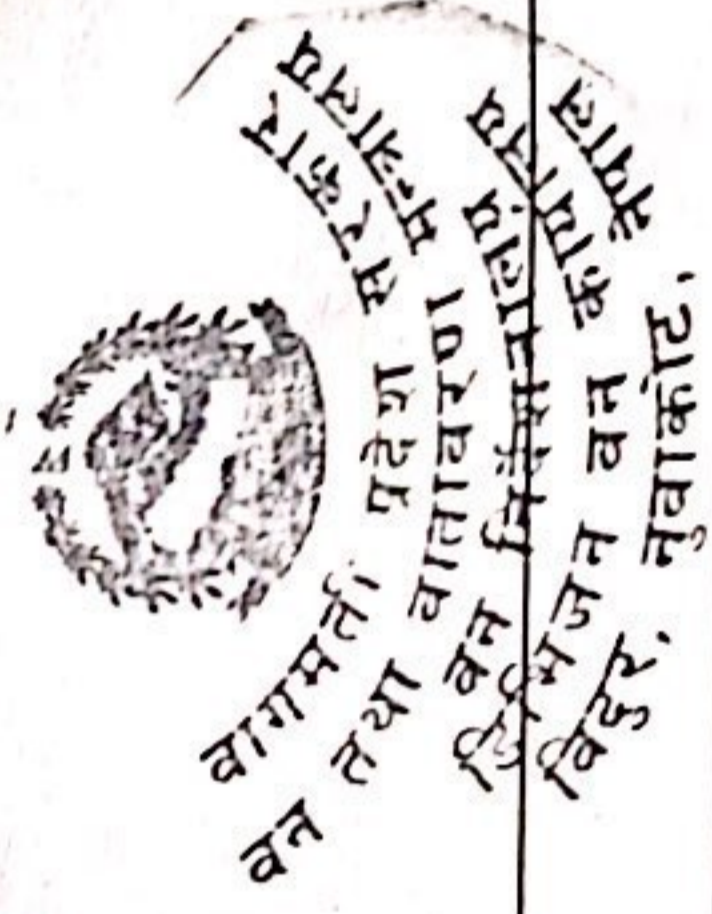 वागमती प्रदेश सरकार
वन तथा वातावरण मन्त्रालय
वन निर्देशनालय
डिभिजन वन कार्यालय
विदुर, नुवाकोट,